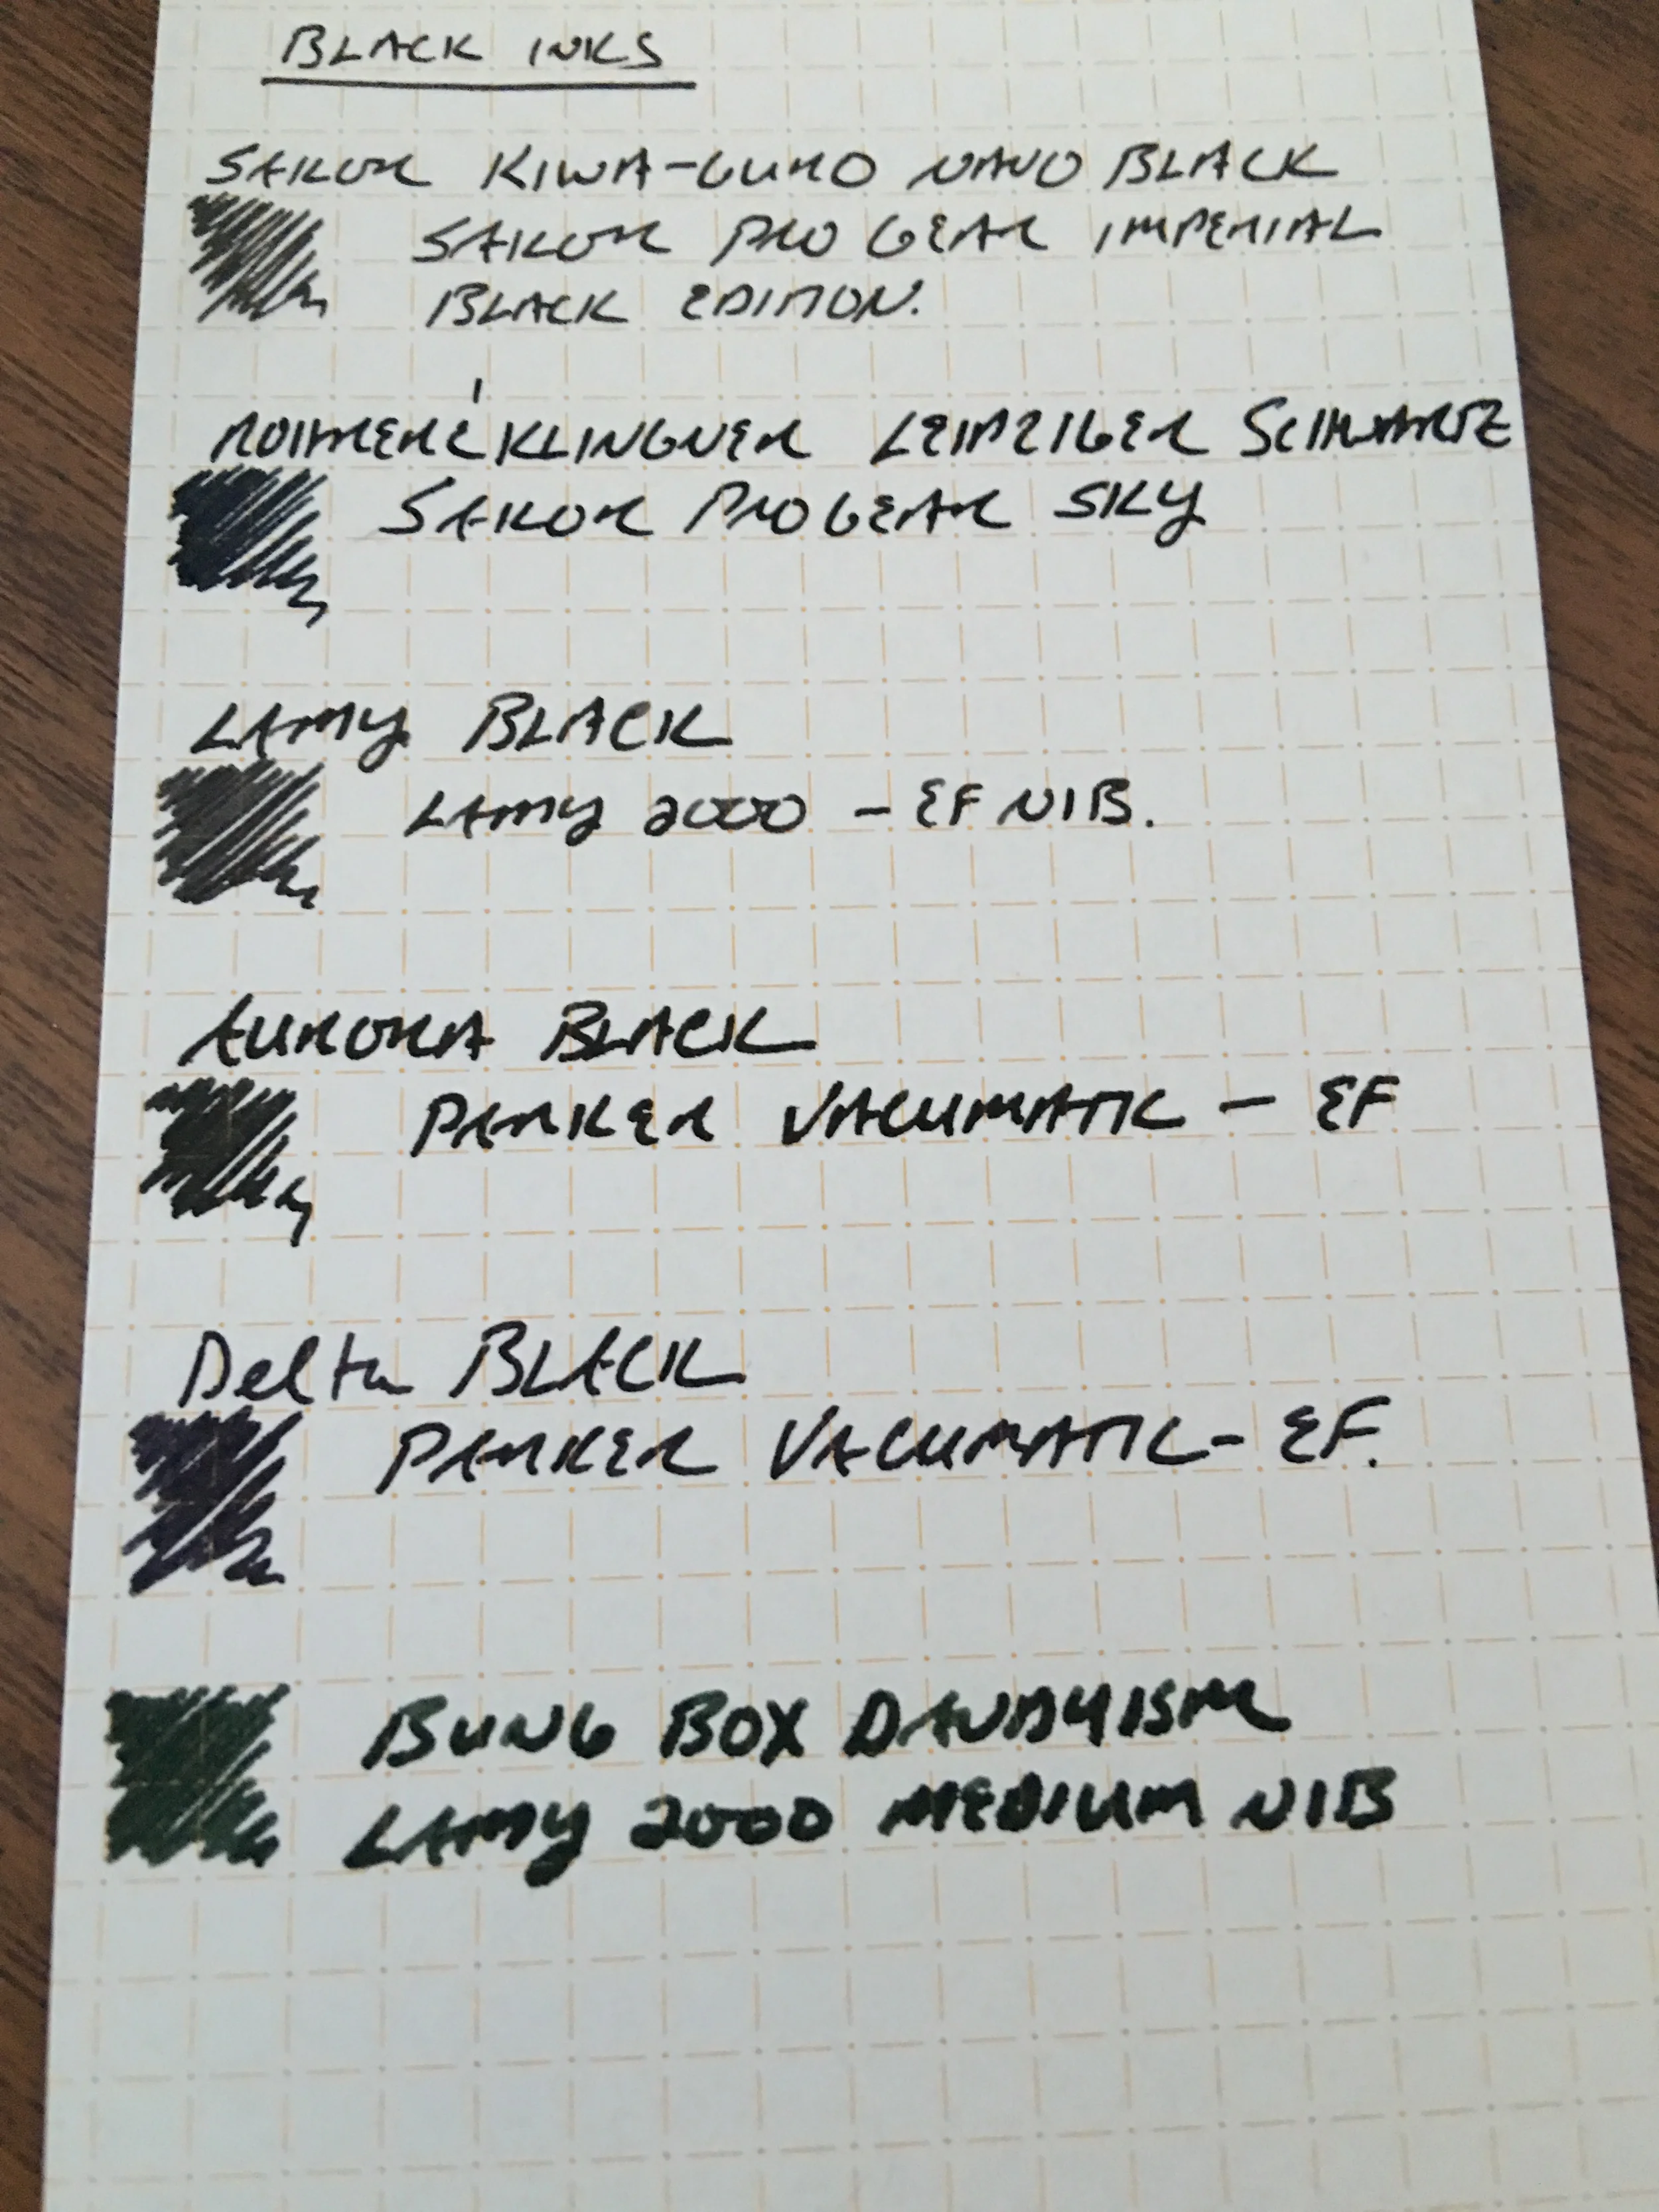 BLACK INKS
SAILOR KIWA-GURO NANO BLACK
SAILOR PRO GEAR IMPERIAL
BLACK EDITION.
ROHRER & KLINGNER LEIPZIGER SCHWARTZ
SAILOR PRO GEAR SKY
LAMY BLACK
LAMY 2000 - EF NIB.
AURORA BLACK
PARKER VACUMATIC - EF
Delta BLACK
PARKER VACUMATIC - EF.
BUNG BOX DANDYISM
LAMY 2000 MEDIUM NIB